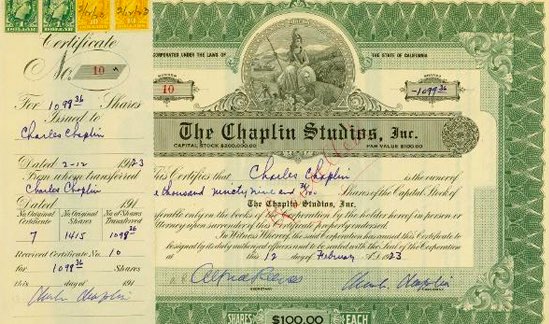 Certificate
No. 10
For 1099 36 Shares
Issued to
Charles Chaplin
Dated 2-12 1923
From whom transferred
Charles Chaplin
Dated 191
No. Original Certificate
No. Original Shares
No. of Shares Transferred
7 1415 1098 36
Received Certificate No. 10
for 1099 36 Shares
this day of 191
Charles Chaplin
INCORPORATED UNDER THE LAWS OF THE STATE OF CALIFORNIA
NUMBER
10
SHARES
-1099 36-
The Chaplin Studios, Inc.
CAPITAL STOCK $200,000.00
PAR VALUE $100.00
This Certifies that Charles Chaplin is the owner of
One thousand ninety nine and 36/100 Shares of the Capital Stock of
The Chaplin Studios, Inc.
transferable only on the books of the Corporation by the holder hereof in person or
Attorney upon surrender of this Certificate properly endorsed.
In Witness Whereof, the said Corporation has caused this Certificate to
be signed by its duly authorized officers and to be sealed with the Seal of the Corporation
at this 12 day of February A.D. 1923
Alf Reeves
SECRETARY
Charles Chaplin
PRESIDENT
SHARES $100.00 EACH